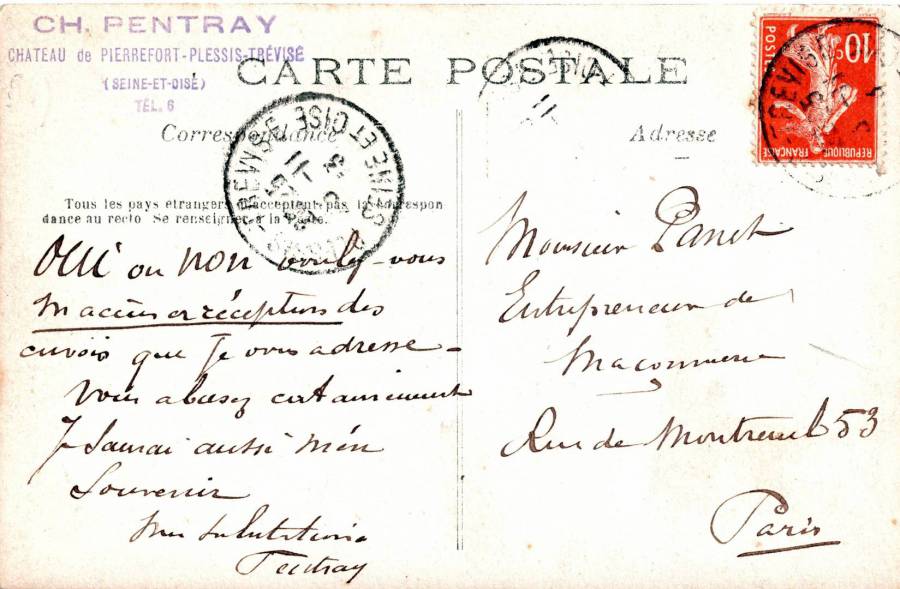 CH. PENTRAY
CHATEAU de PIERREFORT-PLESSIS-TRÉVISE
(SEINE-ET-OISE)
TÉL. 6
CARTE POSTALE
Correspondance
Adresse
Tous les pays étrangers n'acceptent pas la correspon
dance au recto Se renseigner à la Poste.
TREVISE SEINE ET OISE
11
10c
POSTES
REPUBLIQUE FRANÇAISE
OUI ou non voulez-vous
m'accuser réception des
envois que je vous adresse -
Vous abusez certainement
Je saurai aussi m'en
souvenir
Mes salutations
Pentray
Monsieur Panet
Entrepreneur de
Maconnerie
Rue de Montreuil 53
Paris